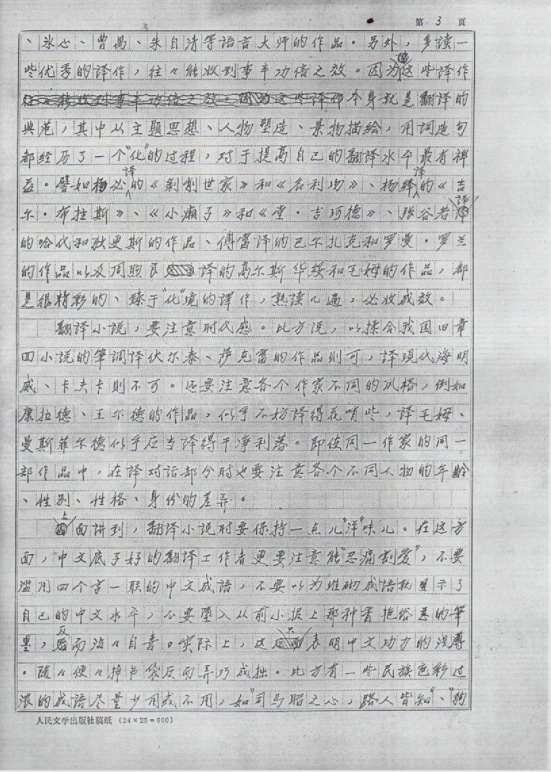 第 3 页
、冰心、曹禺、朱自清等语言大师的作品。另外，多读一
些优秀的译作，往々能收到事半功倍之效。因为这些译作
本身就是翻译的
典范，其中从主题思想、人物塑造、景物描绘，用词造句
都经历了一个"化"的过程，对于提高自己的翻译水平最有裨
益。譬如杨必译的《剥削世家》和《名利场》、杨绛译的《吉
尔·布拉斯》、《小癞子》和《堂·吉诃德》、张谷若译
的哈代和狄更斯的作品、傅雷译的巴尔扎克和罗曼·罗兰
的作品以及周煦良译的高尔斯华绥和毛姆的作品，都
是很精彩的、臻于"化"境的译作，熟读几遍，必收成效。
翻译小说，要注意时代感。比方说，以揉合我国旧章
回小说的笔调译伏尔泰、萨克雷的作品则可，译现代海明
威、卡夫卡则不可。还要注意各个作家不同的风格，例如
康拉德、王尔德的作品，似乎不妨译得花哨些，译毛姆、
曼斯菲尔德似乎应当译得干净利落。即使同一作家的同一
部作品中，在译对话部分时也要注意各个不同人物的年龄
、性别、性格、身份的差异。
上面讲到，翻译小说时要保持一点儿"洋"味儿。在这方
面，中文底子好的翻译工作者更要注意能"忍痛割爱"，不要
滥用四个字一联的中文成语，不要以为堆砌成语就显示了
自己的中文水平，不要堕入从前小报上那种香艳俗恶的笔
墨，反而沾々自喜。实际上，这正表明中文功力的浅薄
。随々便々掉书袋反而弄巧成拙。比方有一些民族色彩过
浓的成语尽量少用或不用，如"司马昭之心，路人皆知"、"狗
人民文学出版社稿纸（24×25=600）